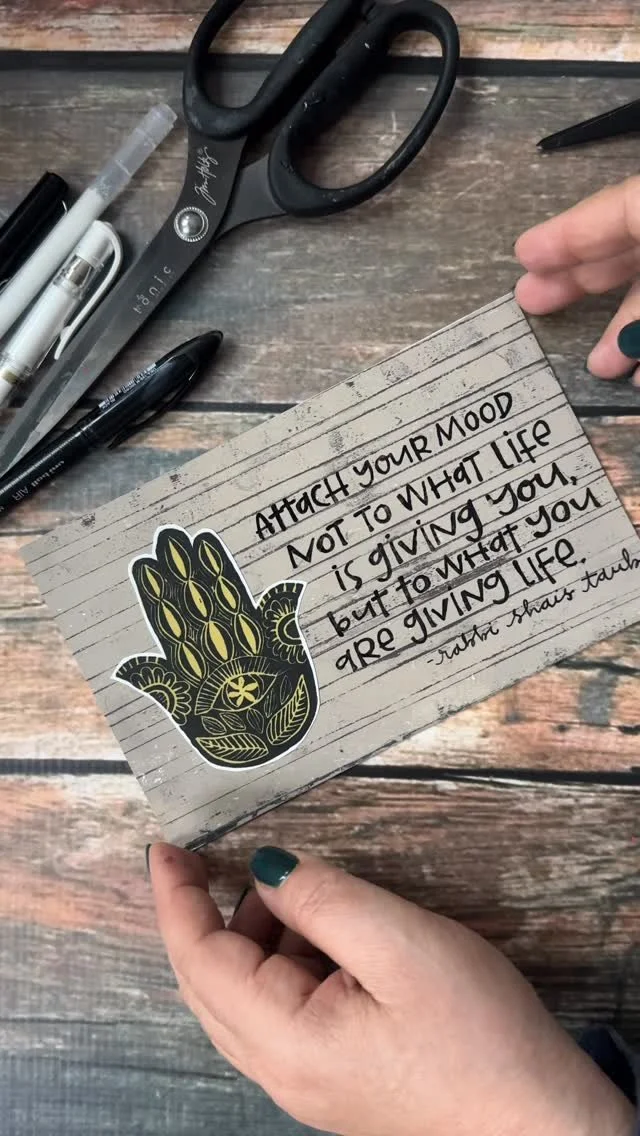 Tim Holtz
tonic
uni-ball AIR
ATTACH YOUR MOOD
NOT TO WHAT LIFE
is giving YOU,
but to WHAT YOU
ARE GIVING LIFE.
-rabbi shais taub